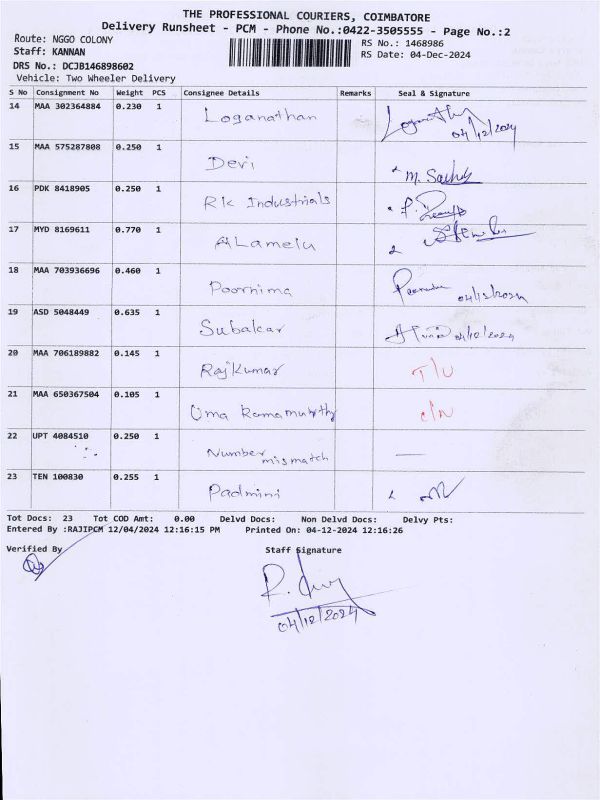 THE PROFESSIONAL COURIERS, COIMBATORE
Delivery Runsheet - PCM - Phone No.:0422-3505555 - Page No.:2
Route: NGGO COLONY
RS No.: 1468986
Staff: KANNAN
RS Date: 04-Dec-2024
DRS No.: DCJB146898602
Vehicle: Two Wheeler Delivery
S No Consignment No Weight PCS Consignee Details Remarks Seal & Signature
14 MAA 302364884 0.230 1 Loganathan Loganathan 04/12/2024
15 MAA 575287808 0.250 1 Devi
16 PDK 8418905 0.250 1 RK Industrials
17 MYD 8169611 0.770 1 ALamelu
18 MAA 703936696 0.460 1 Poornima 04/12/2024
19 ASD 5048449 0.635 1 Subakar 04/12/2024
20 MAA 706189882 0.145 1 Rajkumar T/U
21 MAA 650367504 0.105 1 Uma Ramamurthy C/N
22 UPT 4084510 0.250 1 Number mismatch —
23 TEN 100830 0.255 1 Padmini
Tot Docs: 23 Tot COD Amt: 0.00 Delvd Docs: Non Delvd Docs: Delvy Pts:
Entered By :RAJIPCM 12/04/2024 12:16:15 PM Printed On: 04-12-2024 12:16:26
Verified By Staff Signature
04/12/2024